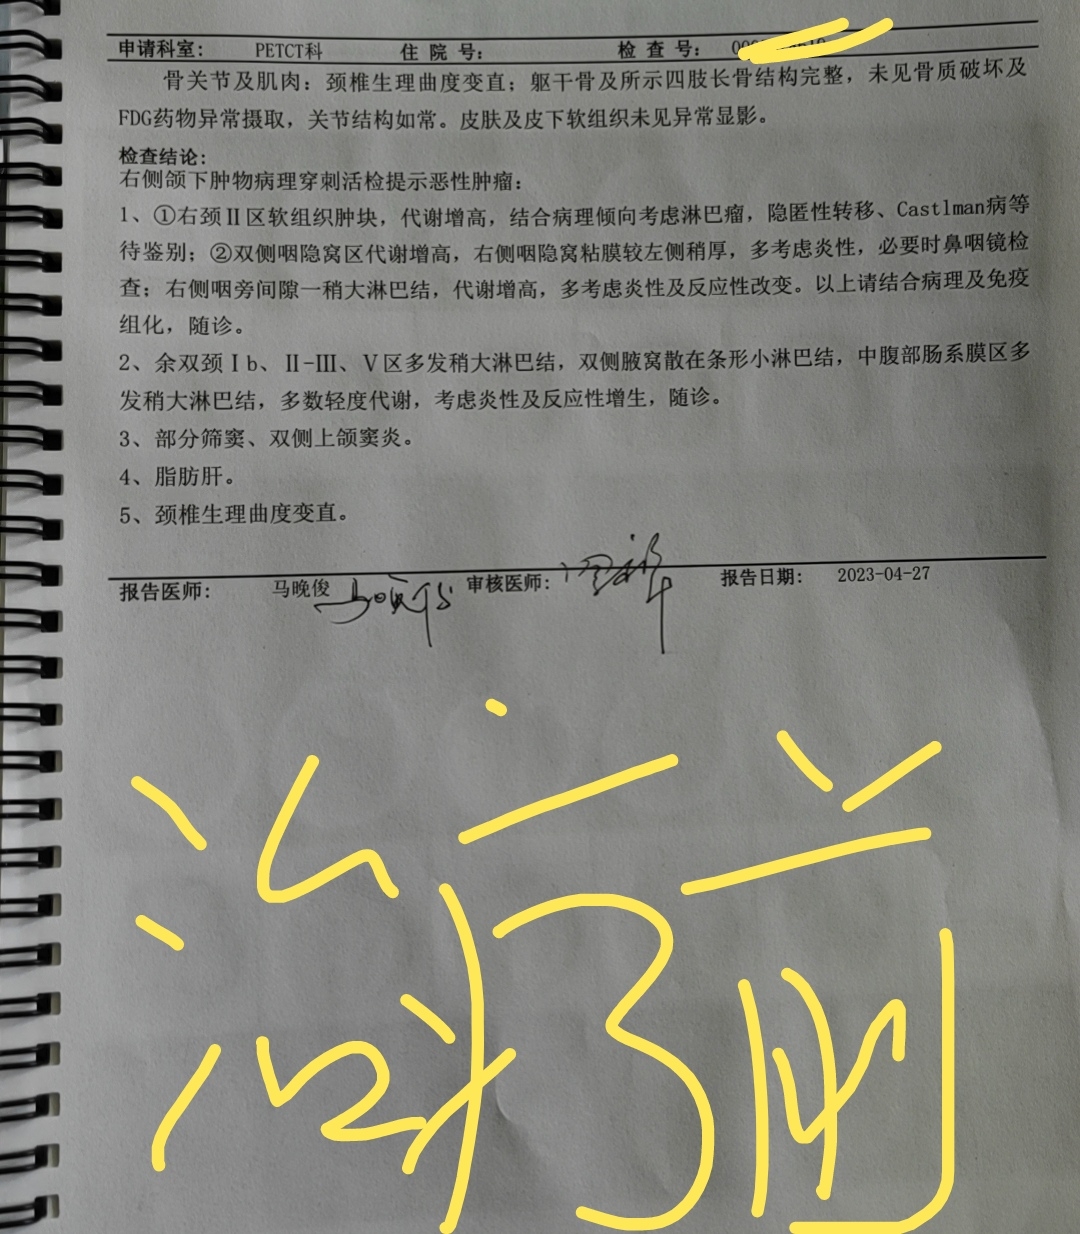 申请科室： PETCT科 住 院 号： 检 查 号：
骨关节及肌肉：颈椎生理曲度变直；躯干骨及所示四肢长骨结构完整，未见骨质破坏及
FDG药物异常摄取，关节结构如常。皮肤及皮下软组织未见异常显影。
检查结论：
右侧颌下肿物病理穿刺活检提示恶性肿瘤：
1、①右颈Ⅱ区软组织肿块，代谢增高，结合病理倾向考虑淋巴瘤，隐匿性转移、Castlman病等
待鉴别；②双侧咽隐窝区代谢增高，右侧咽隐窝粘膜较左侧稍厚，多考虑炎性，必要时鼻咽镜检
查；右侧咽旁间隙一稍大淋巴结，代谢增高，多考虑炎性及反应性改变。以上请结合病理及免疫
组化，随诊。
2、余双颈Ⅰb、Ⅱ-Ⅲ、Ⅴ区多发稍大淋巴结，双侧腋窝散在条形小淋巴结，中腹部肠系膜区多
发稍大淋巴结，多数轻度代谢，考虑炎性及反应性增生，随诊。
3、部分筛窦、双侧上颌窦炎。
4、脂肪肝。
5、颈椎生理曲度变直。
报告医师： 马晚俊 审核医师： 报告日期： 2023-04-27
治疗前